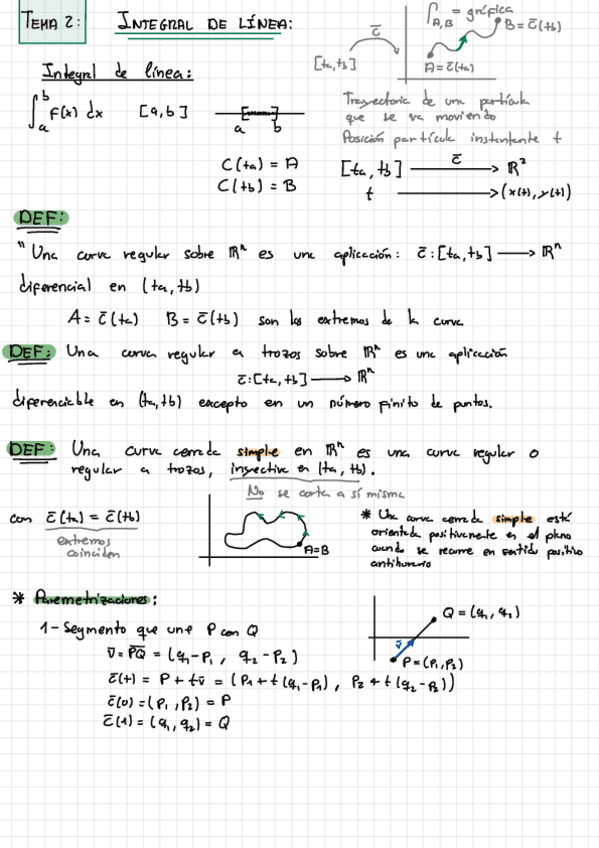 TEMA 2: INTEGRAL DE LÍNEA:
∫A,B = gráfica
c̄
B = c̄(tb)
[ta, tb]
A = c̄(ta)
Integral de línea:
∫ₐᵇ F(x) dx [a,b]
a b
Trayectoria de una partícula
que se va moviendo
Posición partícula instentente t
C(ta) = A
C(tb) = B
[ta, tb] c̄ ⟶ ℝ²
t ⟶ (x(t), y(t))
DEF:
" Una curva regular sobre ℝⁿ es una aplicación: c̄:[ta,tb] ⟶ ℝⁿ
diferencial en (ta, tb)
A = c̄(ta) B = c̄(tb) son los extremos de la curva
DEF: Una curva regular a trozos sobre ℝⁿ es una aplicación
c̄:[ta, tb] ⟶ ℝⁿ
diferenciable en (ta, tb) excepto en un número finito de puntos.
DEF: Una curva cerrada simple en ℝⁿ es una curva regular o
regular a trozos, inyectiva en (ta, tb).
No se corta a sí misma
con c̄(ta) = c̄(tb)
extremos
coinciden
A=B
* Una curva cerrada simple está
orientada positivamente en el plano
cuando se recorre en sentido positivo
antihorario
* Parametrizaciones:
1- Segmento que une P con Q
v̄ = P̄Q̄ = (q₁-p₁ , q₂-p₂)
c̄(t) = P + tv̄ = (p₁ + t(q₁-p₁) , p₂ + t(q₂-p₂))
c̄(0) = (p₁, p₂) = P
c̄(1) = (q₁, q₂) = Q
Q = (q₁, q₂)
v̄
P = (p₁, p₂)